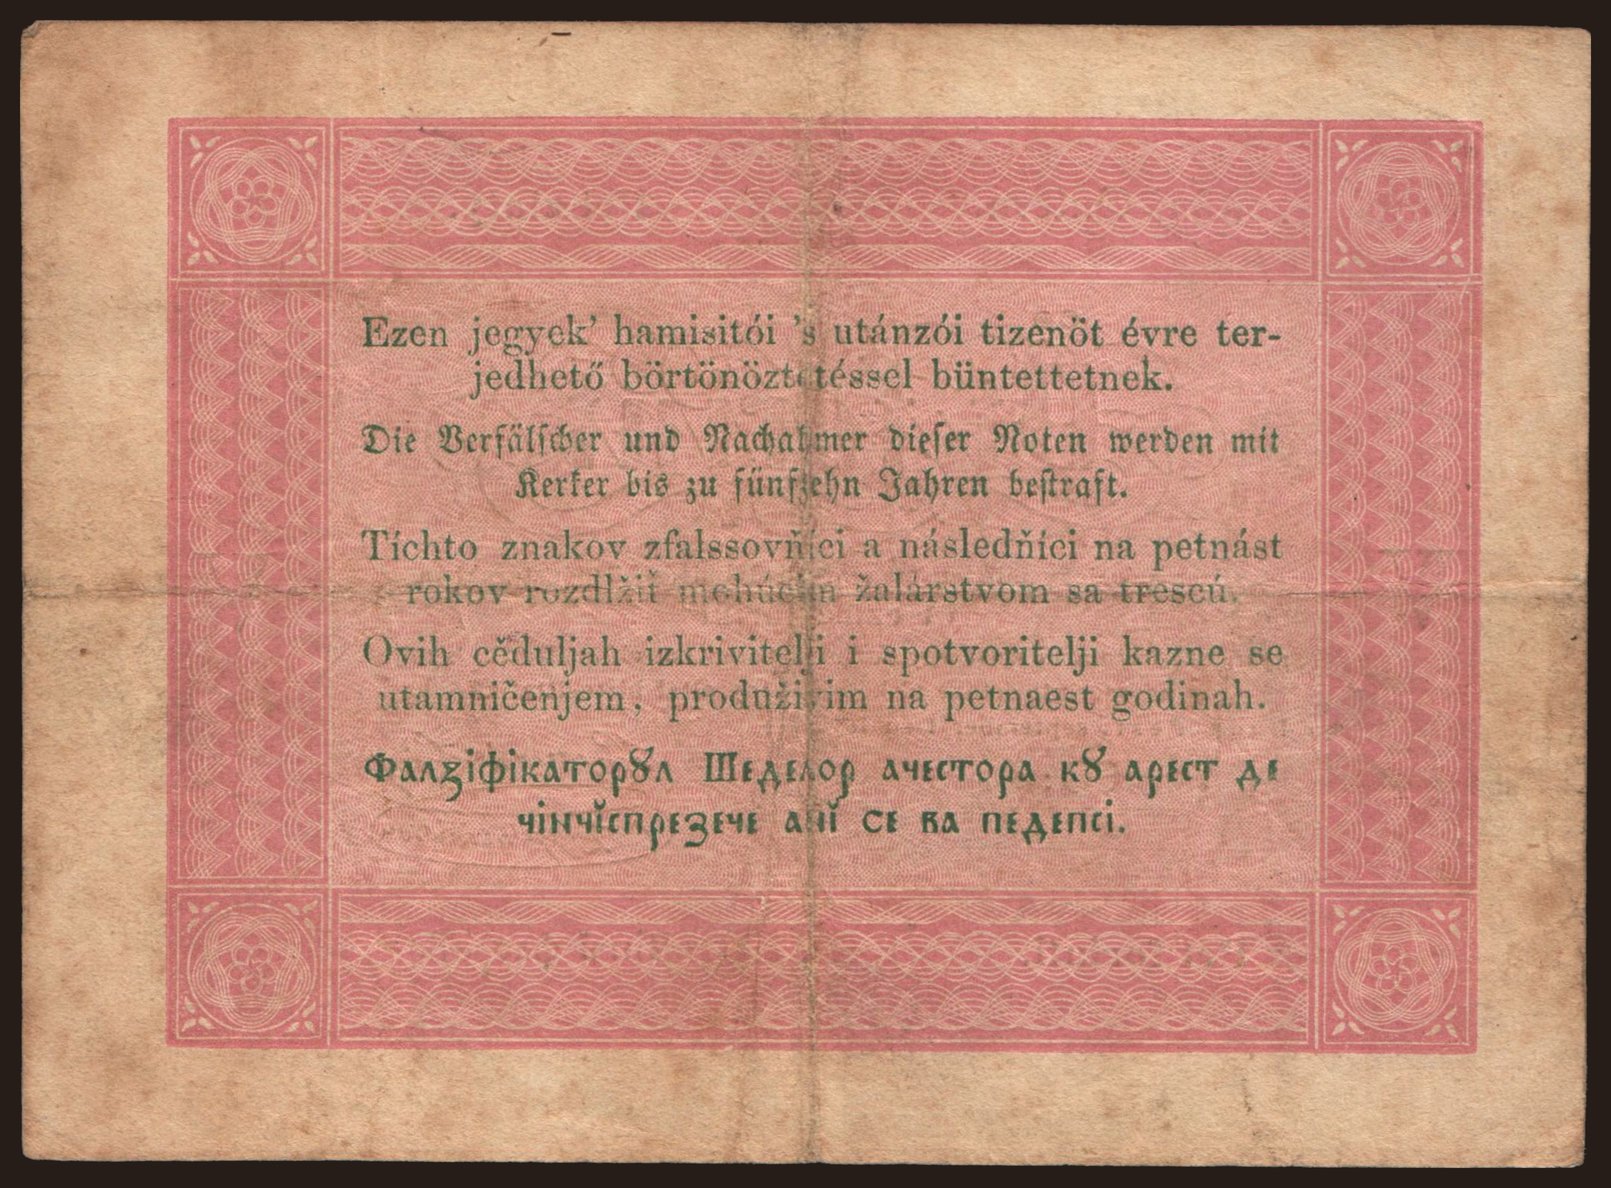 Ezen jegyek’ hamisitói ’s utánzói tizenöt évre ter-
jedhető börtönöztetéssel büntettetnek.
Die Verfälscher und Nachahmer dieser Noten werden mit
Kerker bis zu fünfzehn Jahren bestraft.
Tíchto znakov zfalssovňíci a následňíci na petnást
rokov rozdlžiť mohúcim žalárstvom sa trescú.
Ovih cěduljah izkrivitelji i spotvoritelji kazne se
utamničenjem, produživim na petnaest godinah.
Фалꙁіфікаторꙋл Шеделор ачестора кꙋ арест де
чінчĭспрезече анĭ се ва педепсі.